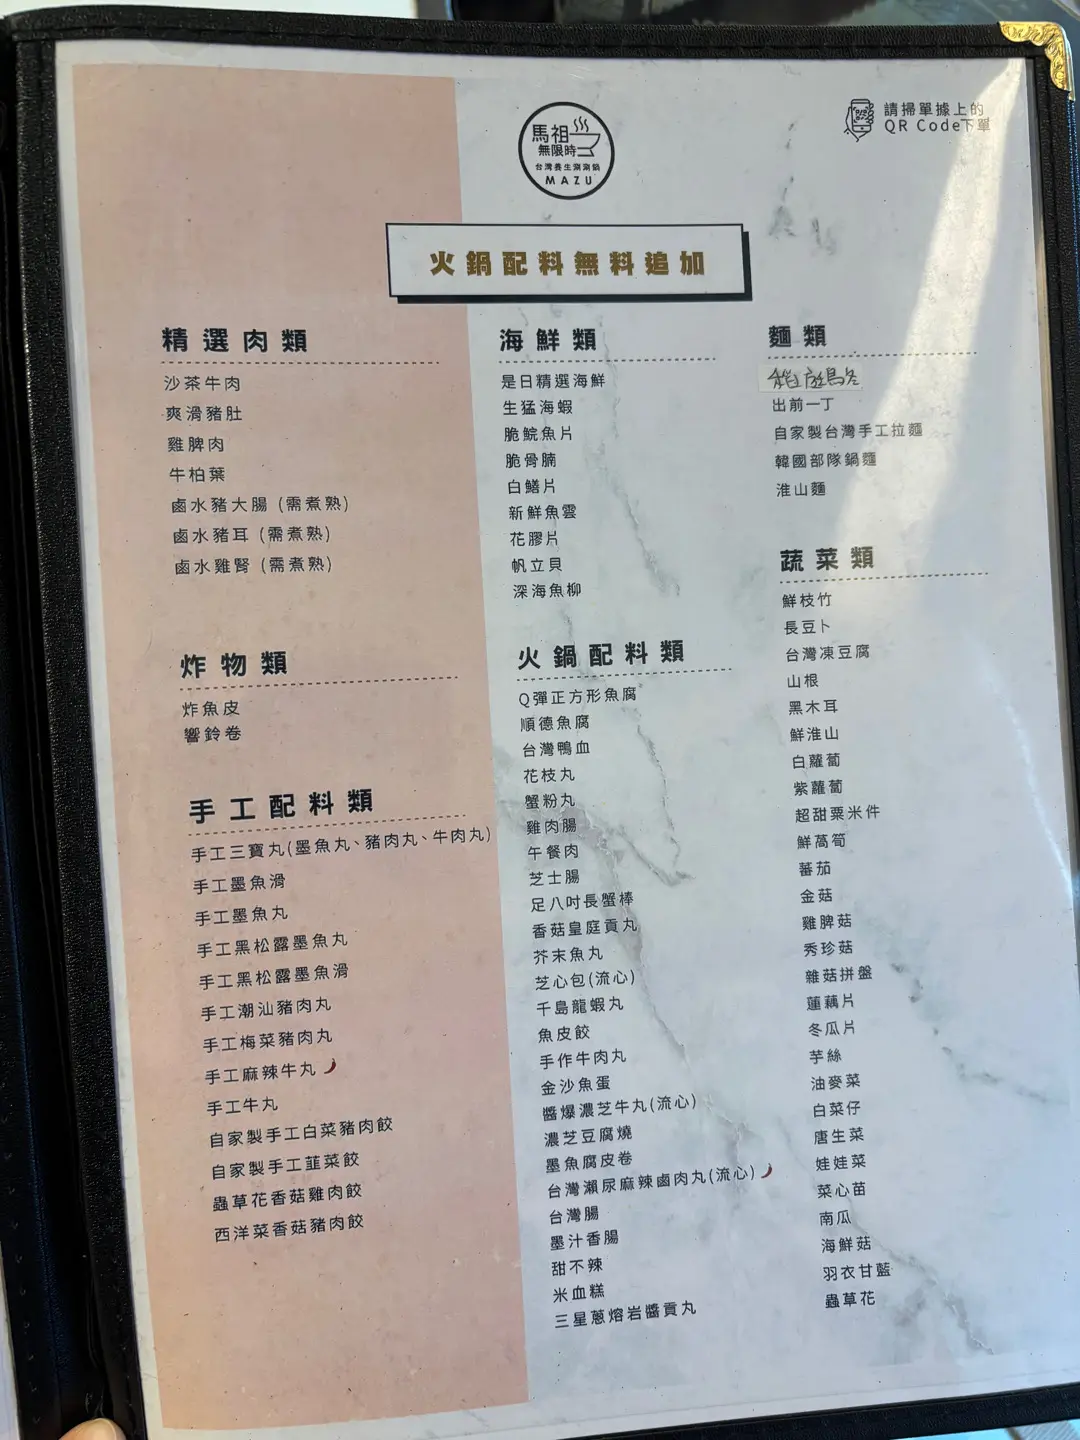 馬祖
無限時
台灣養生涮涮鍋
MAZU
請掃單據上的
QR Code下單
火鍋配料無料追加
精選肉類
沙茶牛肉
爽滑豬肚
雞脾肉
牛柏葉
鹵水豬大腸 (需煮熟)
鹵水豬耳 (需煮熟)
鹵水雞腎 (需煮熟)
炸物類
炸魚皮
響鈴卷
手工配料類
手工三寶丸(墨魚丸、豬肉丸、牛肉丸)
手工墨魚滑
手工墨魚丸
手工黑松露墨魚丸
手工黑松露墨魚滑
手工潮汕豬肉丸
手工梅菜豬肉丸
手工麻辣牛丸
手工牛丸
自家製手工白菜豬肉餃
自家製手工韮菜餃
蟲草花香菇雞肉餃
西洋菜香菇豬肉餃
海鮮類
是日精選海鮮
生猛海蝦
脆鯇魚片
脆骨腩
白鱔片
新鮮魚雲
花膠片
帆立貝
深海魚柳
火鍋配料類
Q彈正方形魚腐
順德魚腐
台灣鴨血
花枝丸
蟹粉丸
雞肉腸
午餐肉
芝士腸
足八吋長蟹棒
香菇皇庭貢丸
芥末魚丸
芝心包(流心)
千島龍蝦丸
魚皮餃
手作牛肉丸
金沙魚蛋
醬爆濃芝牛丸(流心)
濃芝豆腐燒
墨魚腐皮卷
台灣瀨尿麻辣鹵肉丸(流心)
台灣腸
墨汁香腸
甜不辣
米血糕
三星蔥熔岩醬貢丸
麵類
稻庭烏冬
出前一丁
自家製台灣手工拉麵
韓國部隊鍋麵
淮山麵
蔬菜類
鮮枝竹
長豆卜
台灣凍豆腐
山根
黑木耳
鮮淮山
白蘿蔔
紫蘿蔔
超甜粟米件
鮮萵筍
蕃茄
金菇
雞脾菇
秀珍菇
雜菇拼盤
蓮藕片
冬瓜片
芋絲
油麥菜
白菜仔
唐生菜
娃娃菜
菜心苗
南瓜
海鮮菇
羽衣甘藍
蟲草花